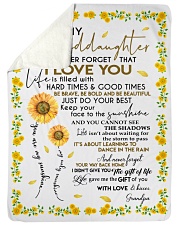 MY
granddaughter
NEVER FORGET THAT
I LOVE YOU
Life is filled with
HARD TIMES & GOOD TIMES
BE BRAVE, BE BOLD AND BE BEAUTIFUL
JUST DO YOUR BEST
Keep your
face to the sunshine
AND YOU CANNOT SEE
THE SHADOWS
Life isn't about waiting for
the storm to pass
IT'S ABOUT LEARNING TO
DANCE IN THE RAIN
And never forget
YOUR WAY BACK HOME
I DIDN'T GIVE YOU The gift of life
Life gave me the GIFT OF you
WITH LOVE & kisses
Grandpa
you are my sunshine